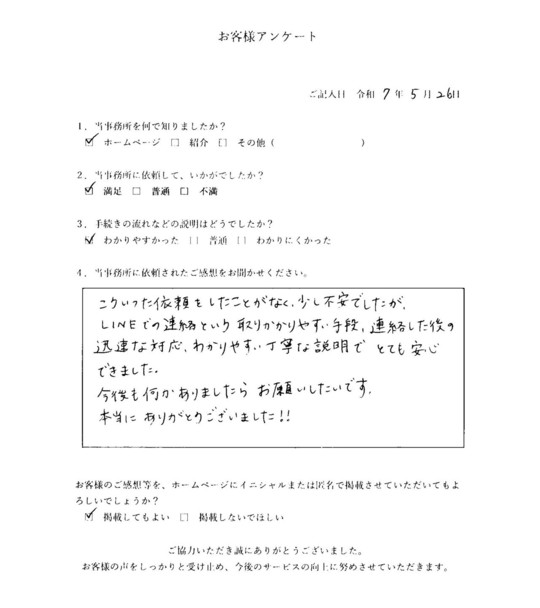 お客様アンケート
ご記入日 令和 7 年 5 月 26日
1．当事務所を何で知りましたか？
☑ ホームページ □ 紹介 □ その他（ ）
2．当事務所に依頼して、いかがでしたか？
☑ 満足 □ 普通 □ 不満
3．手続きの流れなどの説明はどうでしたか？
☑ わかりやすかった □ 普通 □ わかりにくかった
4．当事務所に依頼されたご感想をお聞かせください。
こういった依頼をしたことがなく、少し不安でしたが、
LINEでの連絡という取りかかりやすい手段、連絡した後の
迅速な対応、わかりやすい丁寧な説明で とても安心
できました。
今後も何かありましたら お願いしたいです。
本当に ありがとうございました!!
お客様のご感想等を、ホームページにイニシャルまたは匿名で掲載させていただいてもよ
ろしいでしょうか？
☑ 掲載してもよい □ 掲載しないでほしい
ご協力いただき誠にありがとうございました。
お客様の声をしっかりと受け止め、今後のサービスの向上に努めさせていただきます。